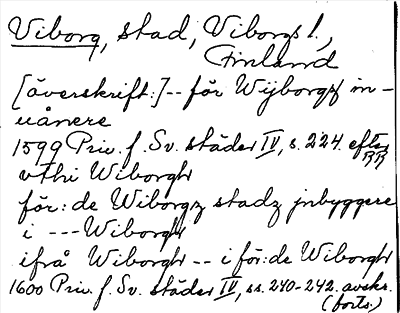 Viborg, stad, Viborgs l.,
Finland
[överskrift:] -- för Wijborgz in-
uånere
1599 Priv. f. Sv. städer IV, s. 224. efter
RR
vthi Wiborgh
för: de Wiborgz stadz jnbyggere
i --- Wiborgh
ifrå Wiborgh -- i för: de Wiborgh
1600 Priv. f. Sv. städer IV, ss. 240-242. avskr.
(forts.)